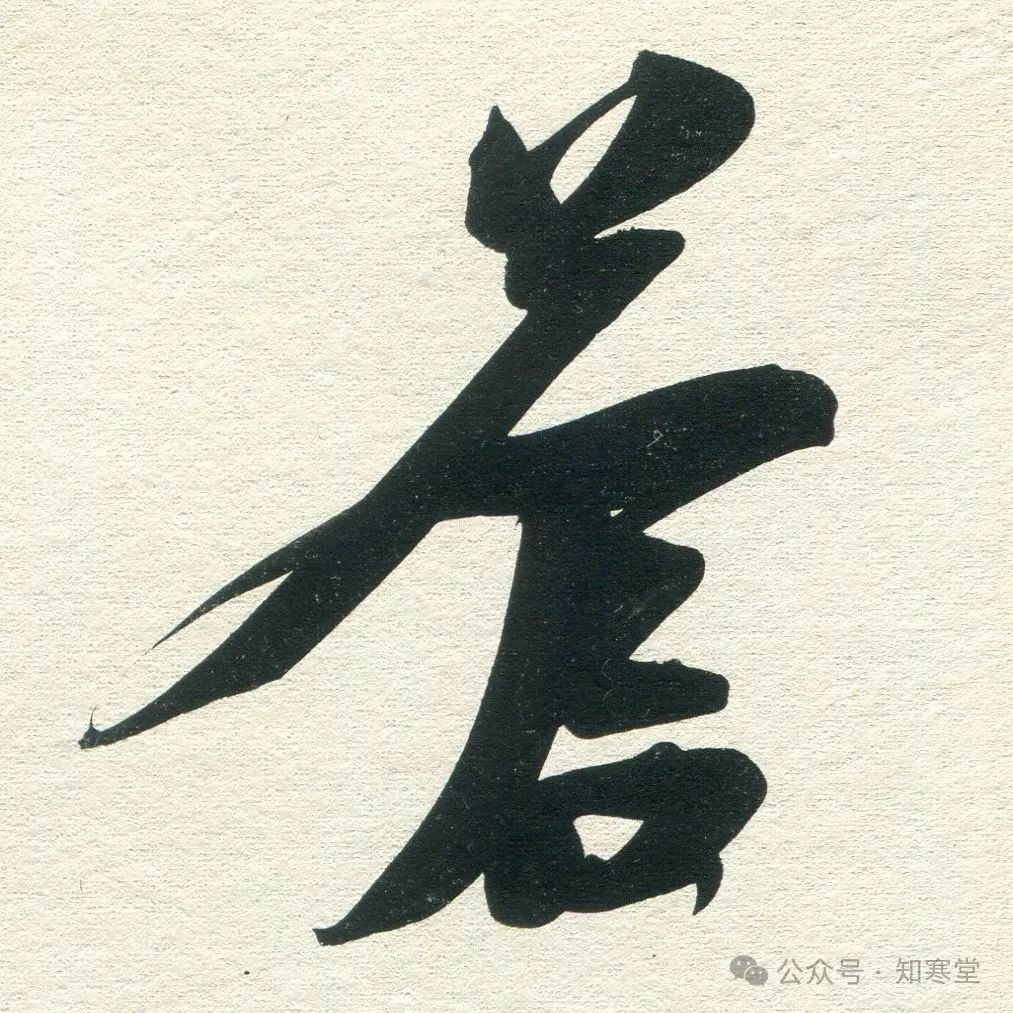 蒼
公众号·知寒堂